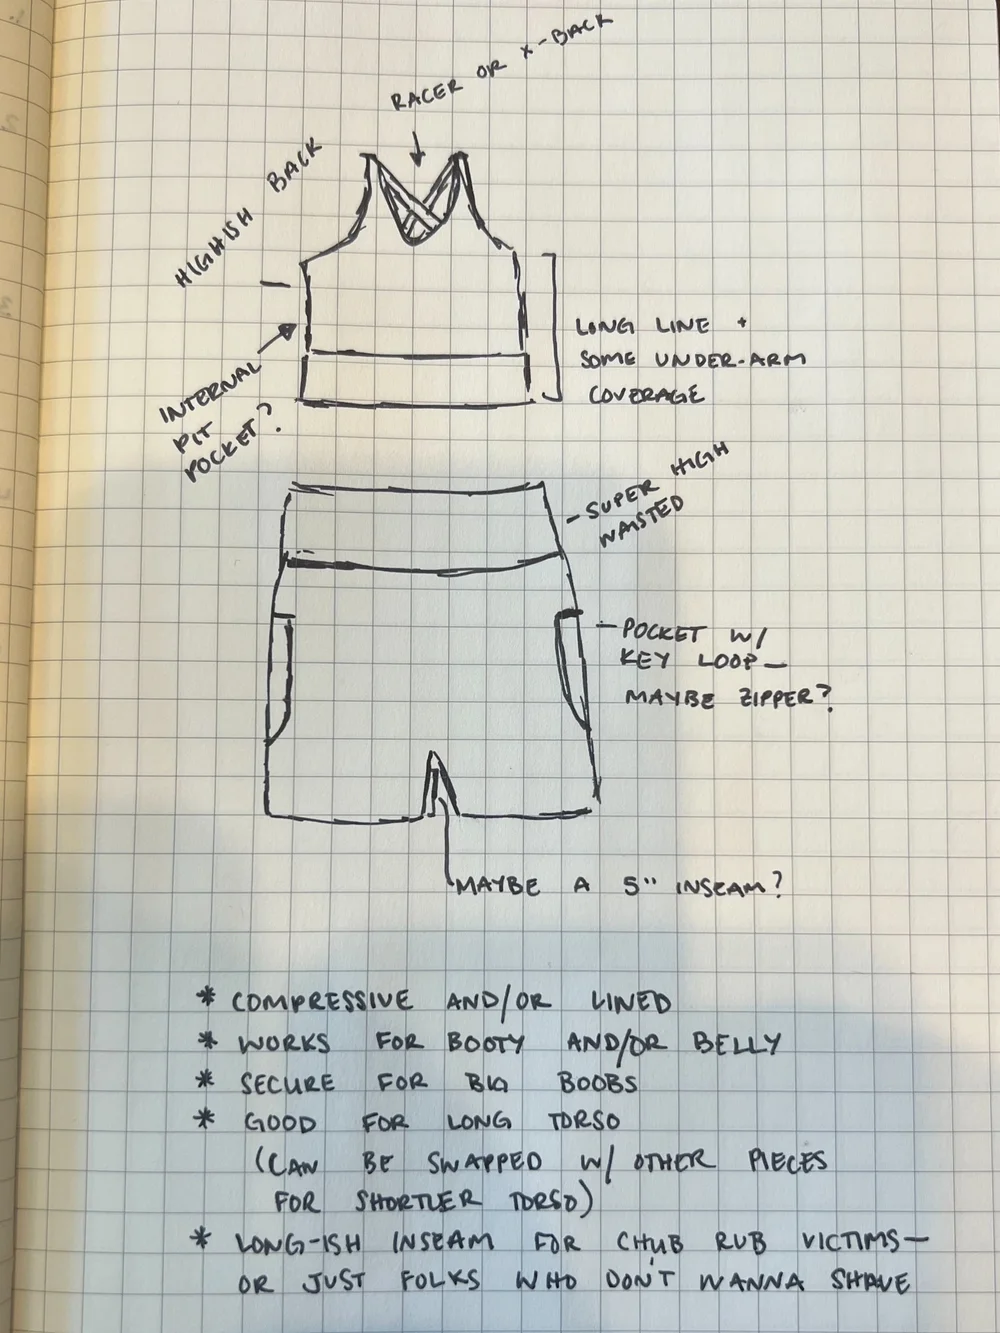 RACER OR X-BACK
HIGHISH BACK
INTERNAL
PIT
POCKET?
LONG LINE +
SOME UNDER-ARM
COVERAGE
- SUPER HIGH
WAISTED
- POCKET W/
KEY LOOP -
MAYBE ZIPPER?
MAYBE A 5" INSEAM?
* COMPRESSIVE AND/OR LINED
* WORKS FOR BOOTY AND/OR BELLY
* SECURE FOR BIG BOOBS
* GOOD FOR LONG TORSO
(CAN BE SWAPPED W/ OTHER PIECES
FOR SHORTLER TORSO)
* LONG-ISH INSEAM FOR CHUB RUB VICTIMS-
OR JUST FOLKS WHO DON'T WANNA SHAVE